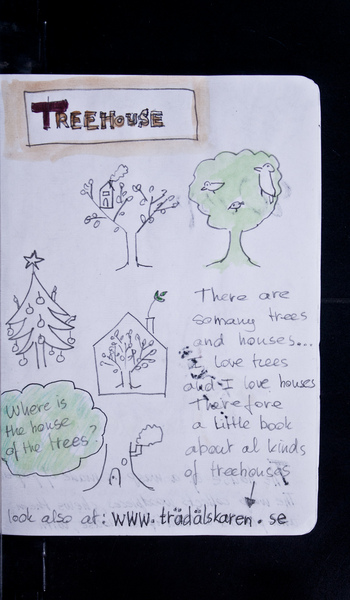 TREEHOUSE
There are
somany trees
and houses...
I love trees
and I love houses
Therefore
a little book
about al kinds
of treehouses
Where is
the house
of the trees?
look also at: www.trädälskaren.se